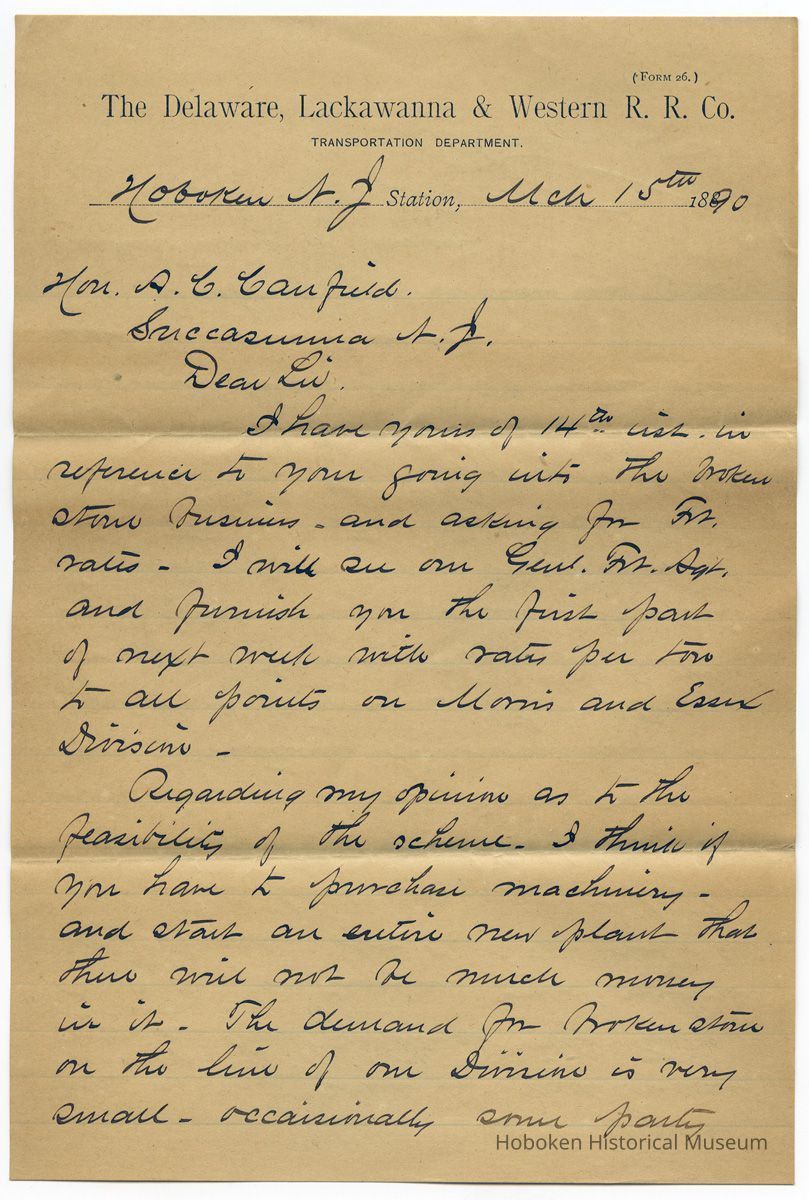 (FORM 26.)
The Delaware, Lackawanna & Western R. R. Co.
TRANSPORTATION DEPARTMENT.
Hoboken N. J Station, Mch 15th 1890
Hon. A. C. Canfield.
Succasunna N. J.
Dear Sir.
I have yours of 14th inst. in
reference to your going into the broken
stone business - and asking for Frt.
rates - I will see our Genl. Frt. Agt.
and furnish you the first part
of next week with rates per ton
to all points on Morris and Essex
Division -
Regarding my opinion as to the
feasibility of the scheme - I think if
you have to purchase machinery -
and start an entire new plant that
there will not be much money
in it - The demand for broken stone
on the line of our Division is very
small - occaisionally some party
Hoboken Historical Museum